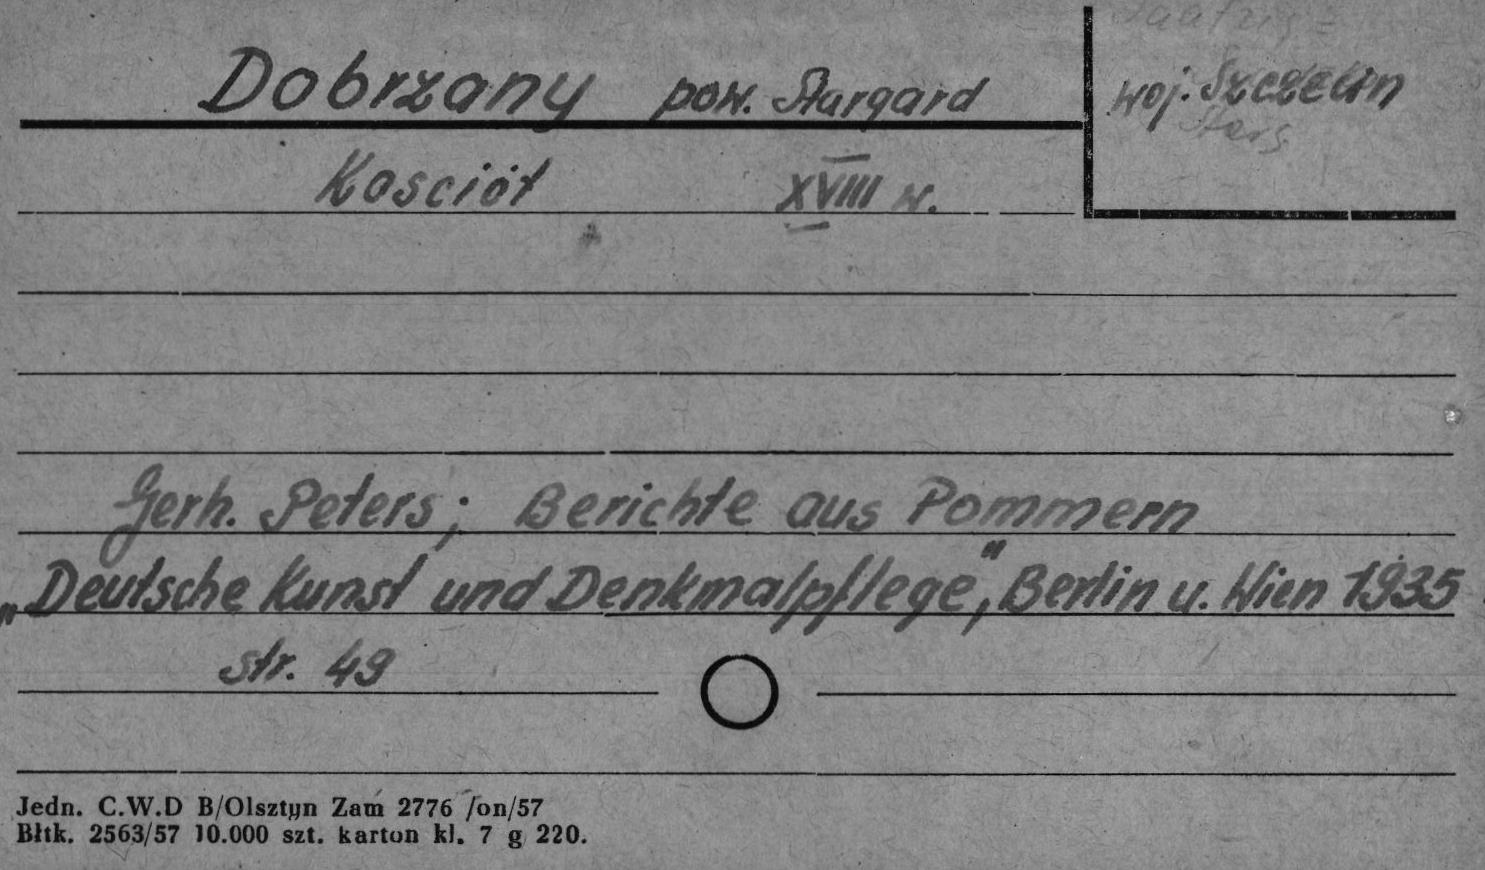 Dobrzany pow. Stargard
woj. Szczecin
Kościół XVIII w.
Gerh. Peters; Berichte aus Pommern
„Deutsche Kunst und Denkmalpflege", Berlin u. Wien 1935
str. 49
Jedn. C.W.D B/Olsztyn Zam 2776 /on/57
Błtk. 2563/57 10.000 szt. karton kl. 7 g 220.